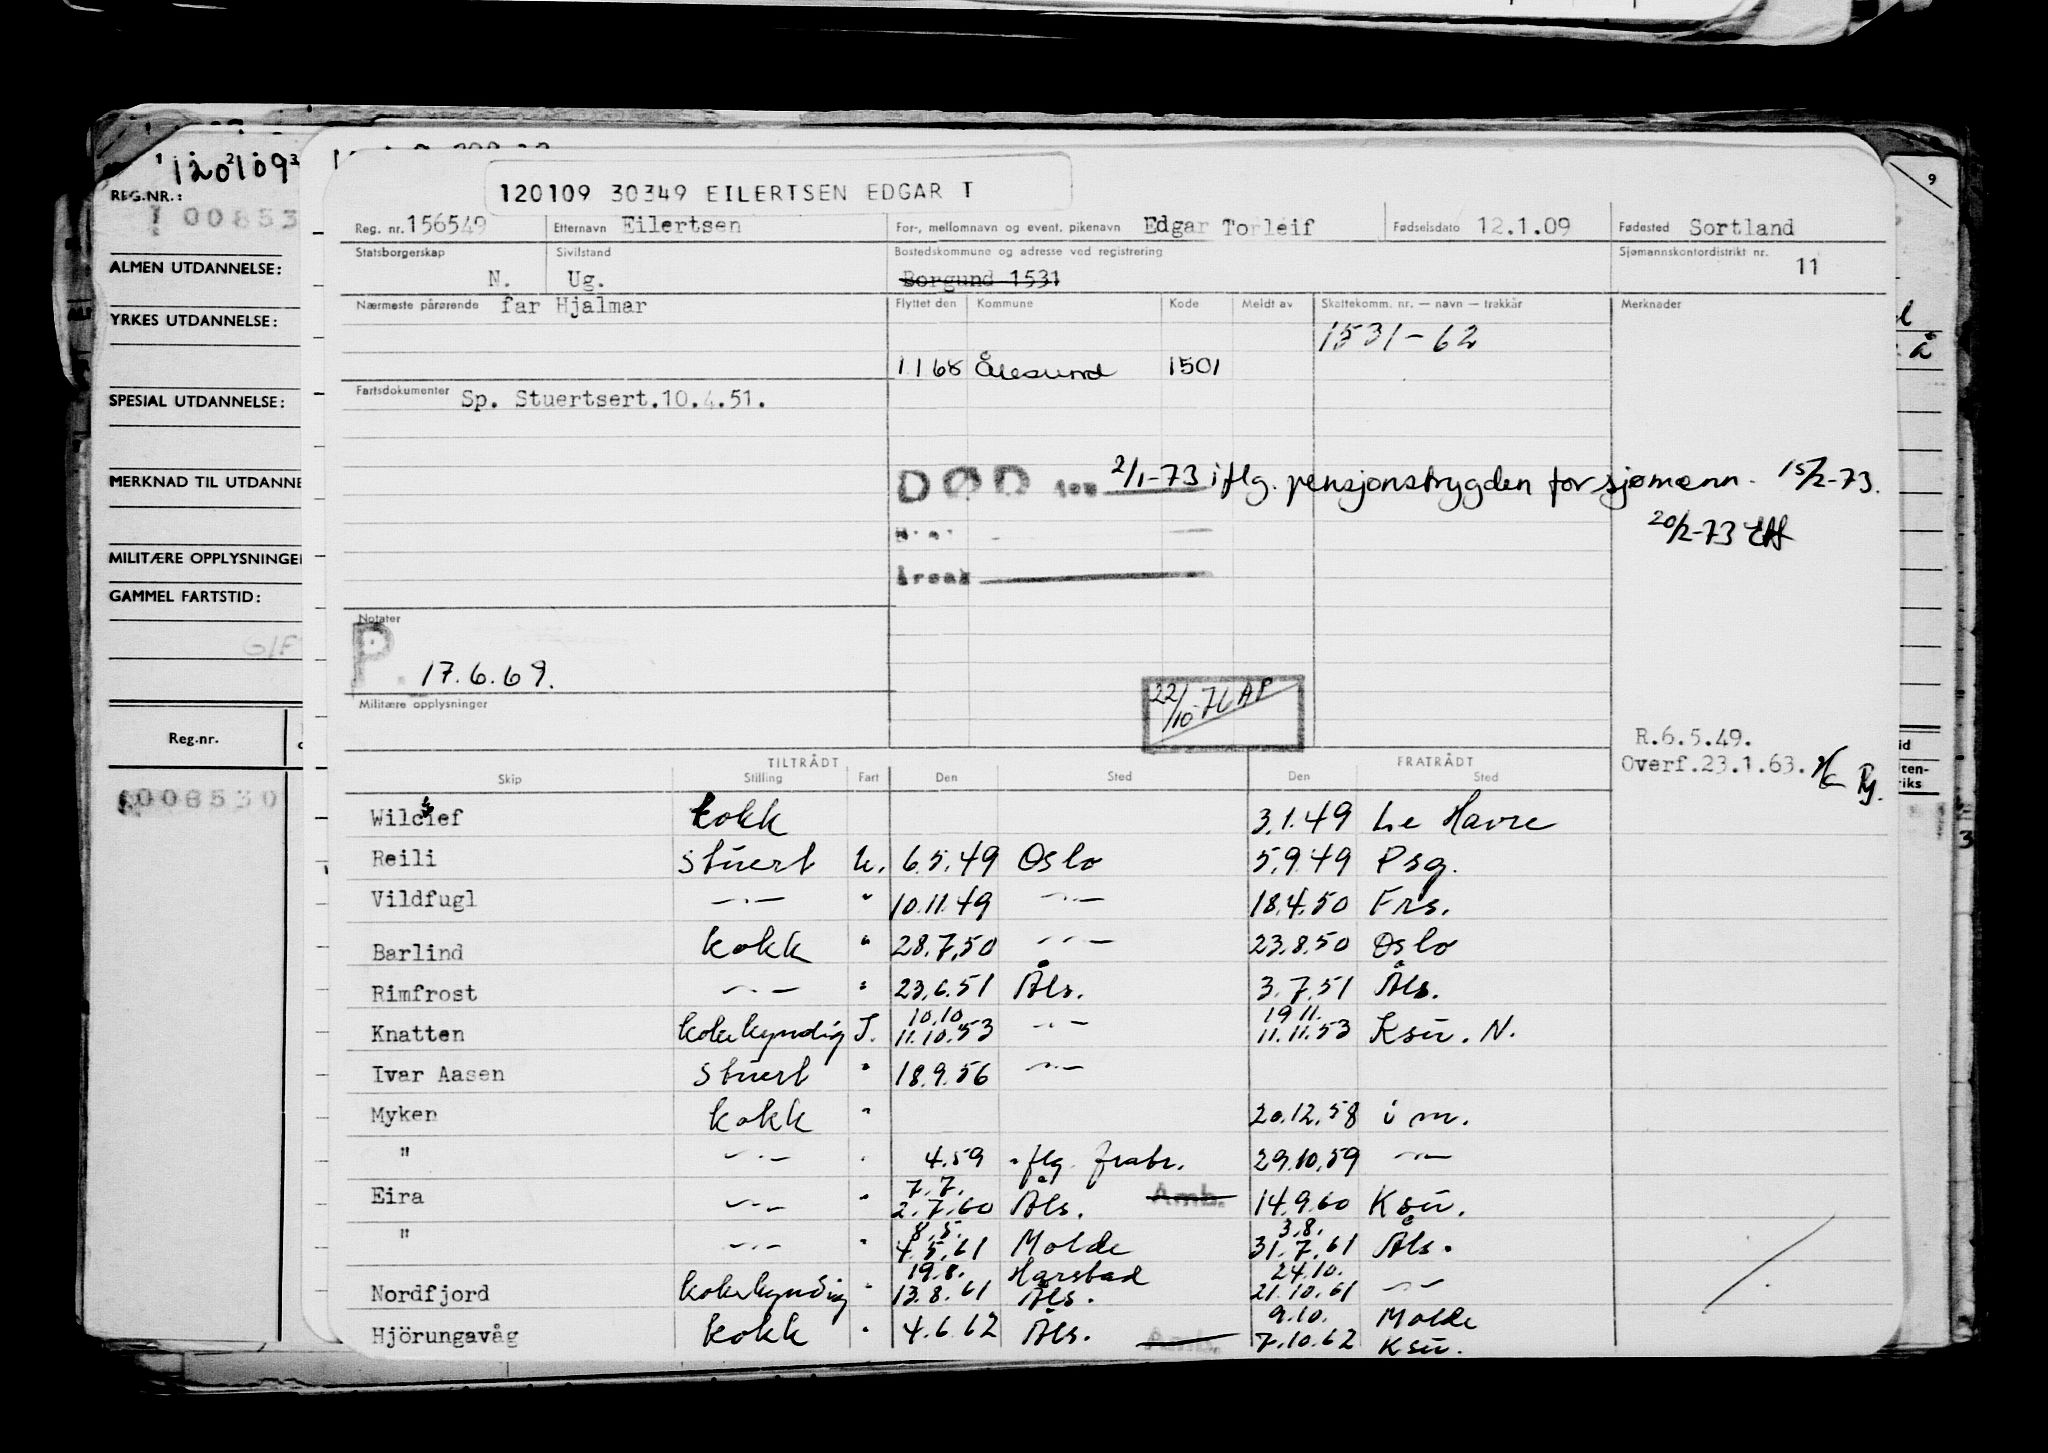 120109
REG.NR.:
100853
ALMEN UTDANNELSE:
YRKES UTDANNELSE:
SPESIAL UTDANNELSE:
MERKNAD TIL UTDANNE
MILITÆRE OPPLYSNINGE
GAMMEL FARTSTID:
G/F
Reg.nr.
1008530
9
120109 30349 EILERTSEN EDGAR T
Reg. nr. 156549 Etternavn Eilertsen For-, mellomnavn og event. pikenavn Edgar Torleif Fødselsdato 12.1.09 Fødested Sortland
Statsborgerskap N. Sivilstand Ug. Bostedskommune og adresse ved registrering Borgund 1531 Sjømannskontordistrikt nr. 11
Nærmeste pårørende far Hjalmar Flyttet den Kommune Kode Meldt av Skattekomm. nr. — navn — trekkår Merknader
1531-62
1168 Ålesund 1501
Fartsdokumenter Sp. Stuertsert.10.4.51.
DØD den 2/1-73 iflg. pensjonstrygden for sjømenn. 15/2-73.
20/2-73
Årsak
Notater
P. 17.6.69.
22/10-71 AP
Militære opplysninger
R.6.5.49.
Overf.23.1.63.
TILTRÅDT FRATRÅDT
Skip Stilling Fart Den Sted Den Sted
Wilclef kokk 3.1.49 Le Havre
Reili Stuert U. 6.5.49 Oslo 5.9.49 Psg.
Vildfugl —"— " 10.11.49 —"— 18.4.50 Frs.
Barlind kokk " 28.7.50 —"— 23.8.50 Oslo
Rimfrost —"— " 23.6.51 Åls. 3.7.51 Åls.
10.10. 19 11.
Knatten kokekyndig I. 11.10.53 —"— 11.11.53 Ksu. N.
Ivar Aasen Stuert " 18.9.56 —"—
Myken kokk " 20.12.58 i m.
" —"— " 4.59 flg. frabr. 29.10.59 —"—
7.7.
Eira —"— " 2.7.60 Åls. Amb. 14.9.60 Ksu.
8.5. 3.8.
" —"— " 4.5.61 Molde 31.7.61 Åls.
19.8. Harstad 24.10.
Nordfjord kokekyndig " 13.8.61 Åls. 21.10.61 —"—
9.10. Molde
Hjörungavåg kokk " 4.6.62 Åls. 7.10.62 Ksu.